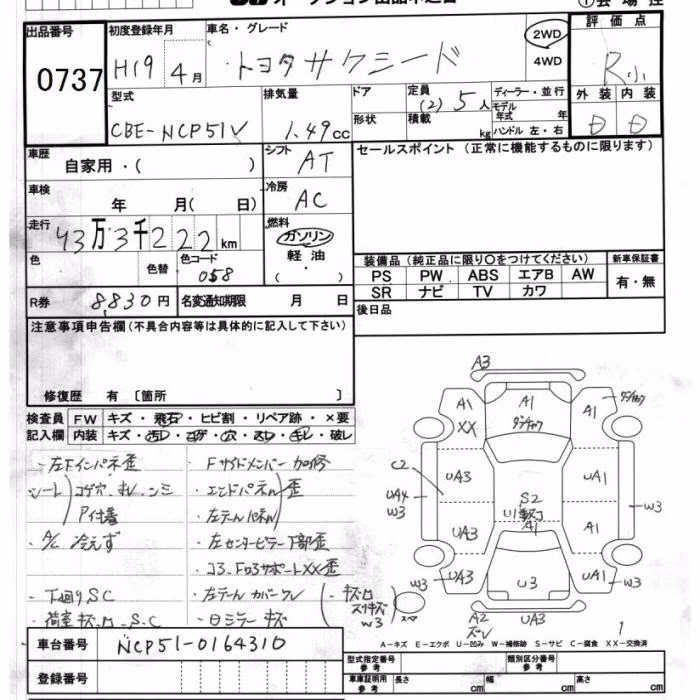 ①会場控
出品番号
0737
初度登録年月
H19 4月
車名・グレード
トヨタサクシード
2WD
4WD
評価点
R
外装 内装
型式
CBE-NCP51V
排気量
1.49cc
ドア
形状
定員
(2) 5人
積載
kg
ディーラー・並行
モデル年式 年
ハンドル 左・右
車歴
自家用・( )
シフト
AT
セールスポイント (正常に機能するものに限ります)
車検
年 月( 日)
冷房
AC
走行
43万3千222km
燃料
ガソリン
軽油
( )
色
色替
色コード
058
装備品 (純正品に限り〇をつけてください)
PS PW ABS エアB AW
SR ナビ TV カワ
新車保証書
有・無
R券
8,830円
名変通知期限 月 日
後日品
注意事項申告欄(不具合内容等は具体的に記入して下さい)
修復歴 有 〔箇所 〕
検査員記入欄
FW キズ・飛石・ヒビ割・リペア跡・×要
内装 キズ・汚レ・コゲ・穴・スレ・キレ・破レ
・左下インパネ歪
シート コゲ穴、キレ、シミ
P付着
・A/C 冷えず
・下廻りSC
・荷室キズ、ロ、S、C
・Fサイドメンバー 加修
・エンドパネル 歪
・左テールパネル
・左センターピラー下部歪
・コア、Fロアサポート××歪
・左テールカバーワレ
・ミラーキズ
A3
A1
XX
A1
A1
C2
UA3
UA1
UA4
W3
S2
W3
UA3
A1
A1
W3
UA3
U3
UA1
W3
A2
UA3
A-キズ E-エクボ U-凹み W-補修跡 S-サビ C-腐食 XX-交換済
車台番号
NCP51-0164310
登録番号
型式指定番号 参考
類別区分番号 参考
車庫証明用 参考
長さ cm
幅 cm
高さ cm